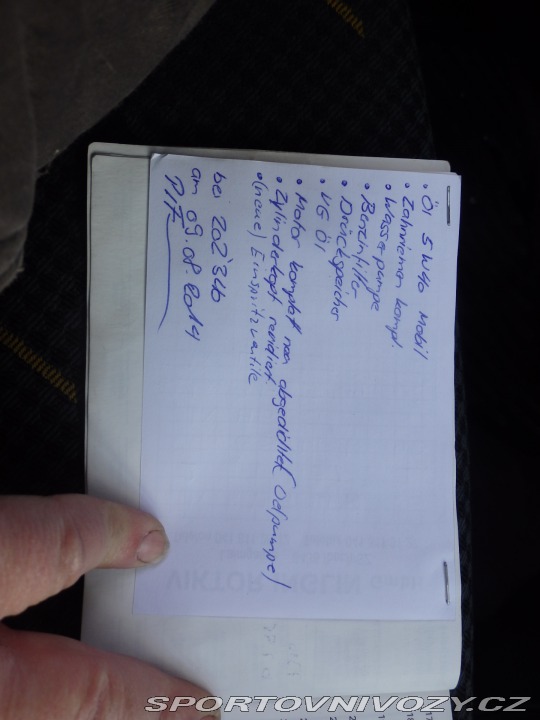 • Öl 5W40 Mobil
• Zahnriemen kompl.
• Wasserpumpe
• Benzinfilter
• Druckspeicher
• VG Öl
• Motor komplet neu abgedichtet (Ödpumpe)
• Zylinderkopf revidiert
• (neue) Einspritzventile
bei 202'346
am 09.08.2014
VIKTOR
SPORTOVNIVOZY.CZ